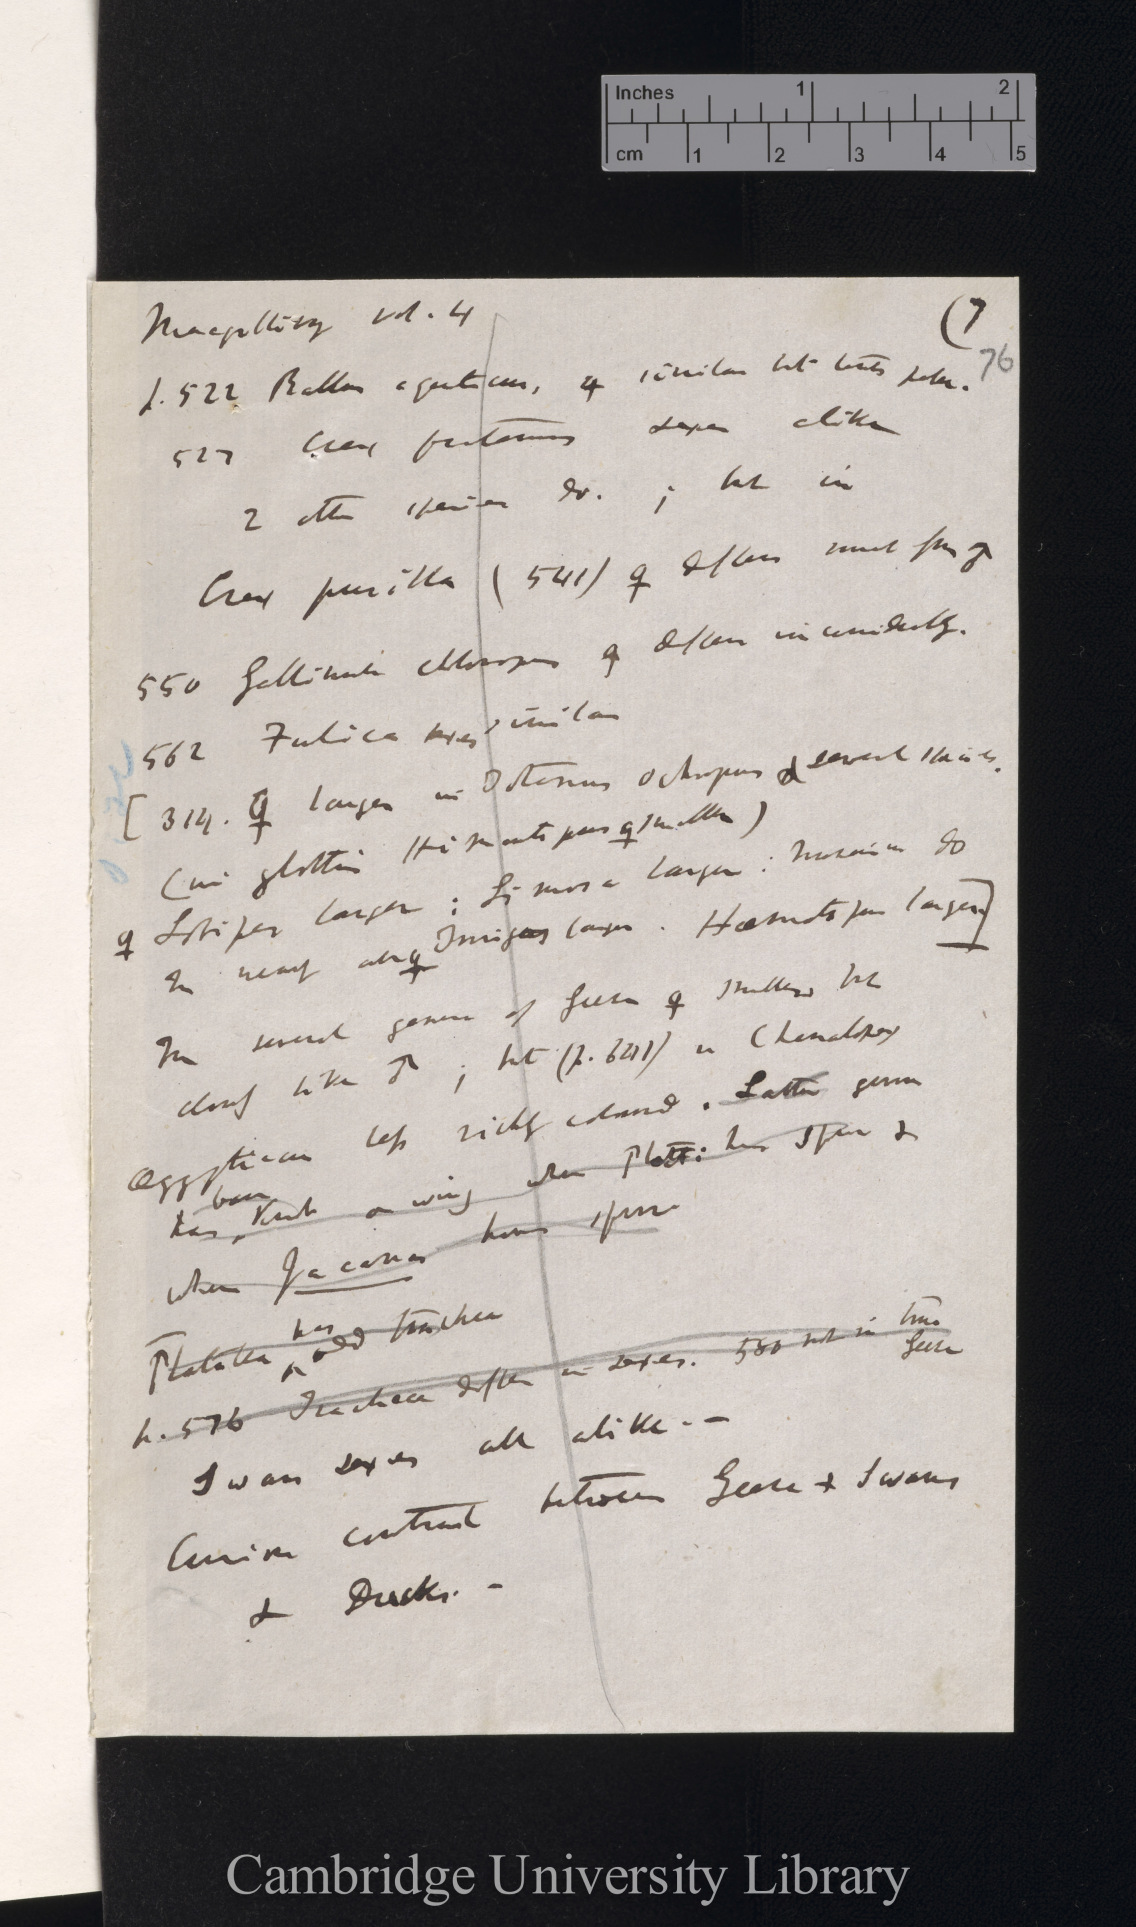 Inches 1 2
cm 1 2 3 4 5
Macgillivray vol. 4 (7
76
p. 522 Rallus aquaticus, ♀ similar but tints paler.
527 Crex pratensis sexes alike
2 other species do. ; but in
Crex pusilla (541) ♀ differs much from ♂
550 Gallinula chloropus ♀ differs inconsiderably.
562 Fulica sexes similar
[314. ♀ larger in Totanus ochropus & several species.
(in glottis Himantopus ♀ smaller)
♀ Lobipes larger : Limosa larger : Numenius do
In nearly all ♀ Tringas larger. Hæmatopus larger]
In several genera of Geese ♀ smaller but
closely like ♂ ; but (p. 641) in Chenalopex
Ægyptiaca less richly coloured. Latter genus
has bare knob on wing when Plectr: has spur &
when Jacanas have spurs
Platalea has odd trachea
p. 576 Trachea differ in sexes. 580 not in true
Geese
Swan sexes all alike. —
Curious contrast between Geese & Swans
& Ducks. —
Cambridge University Library